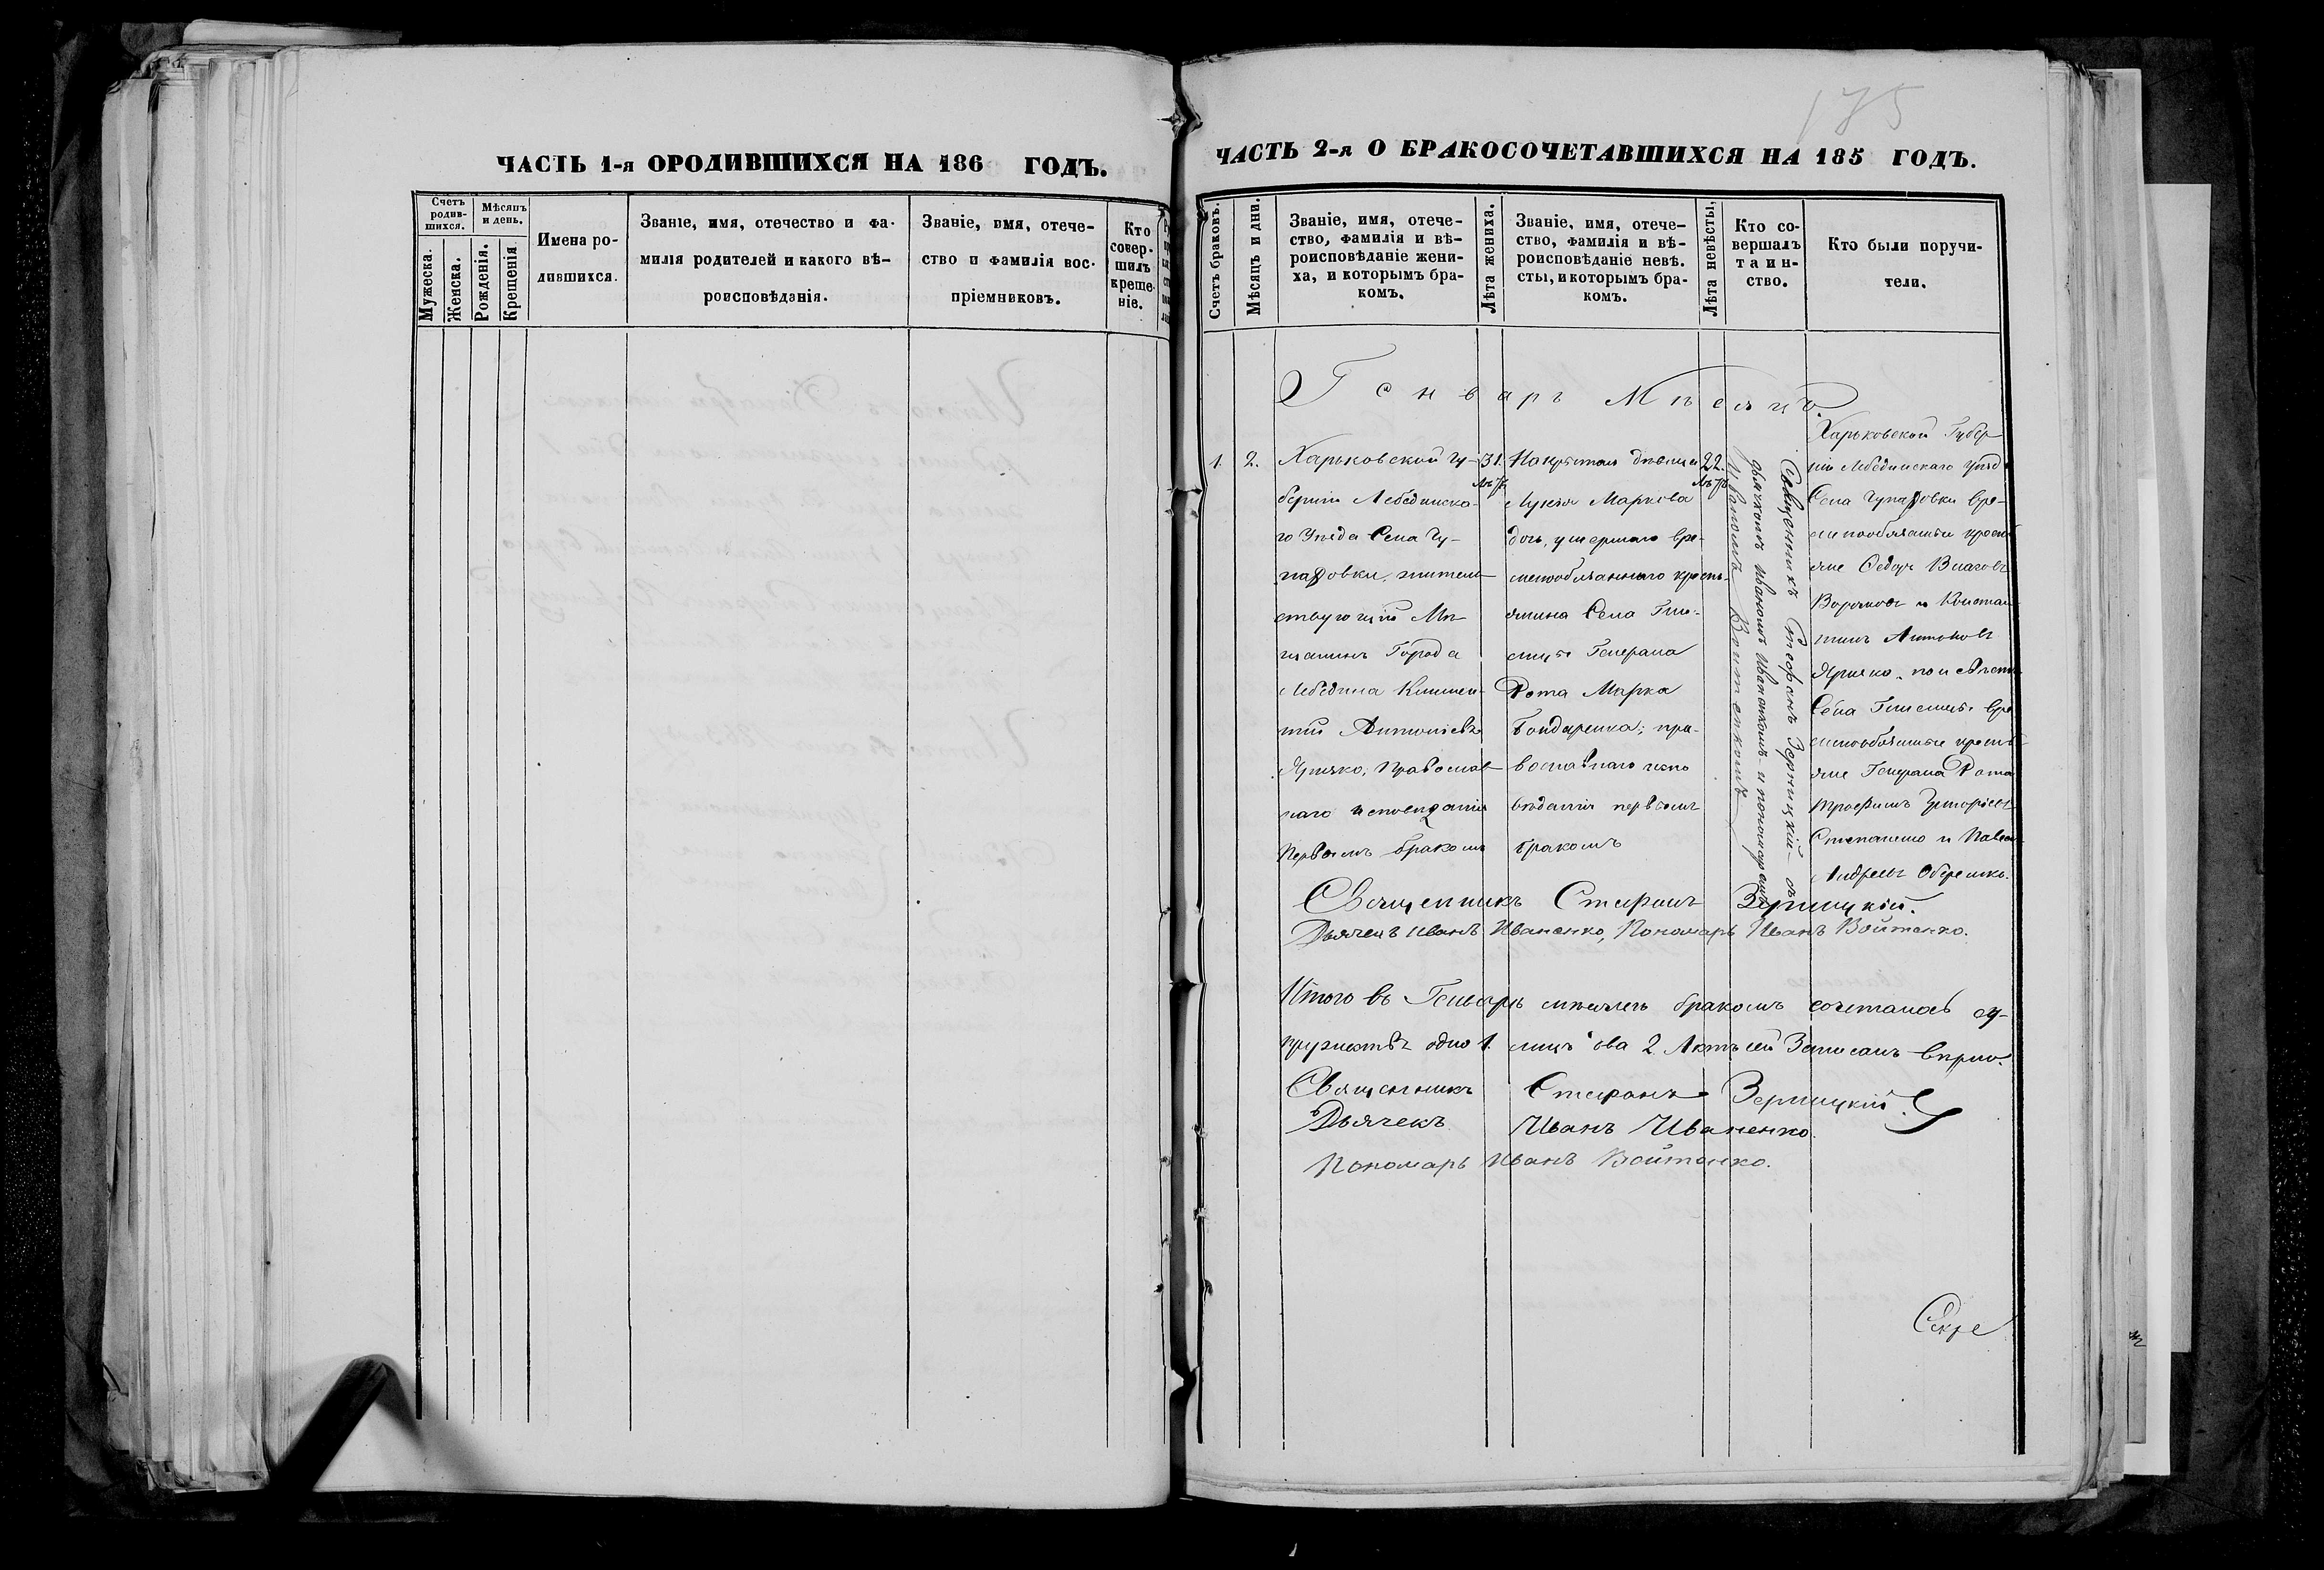 ЧАСТЬ 1-я ОРОДИВШИХСЯ НА 186 ГОДЪ.
Счетъ родив-шихся.
Мѣсяцъ и день.
Мужеска.
Женска.
Рожденія.
Крещенія
Имена ро-
дившихся.
Званіе, имя, отечество и фа-
милія родителей и какого вѣ-
роисповѣданія.
Званіе, имя, отече-
ство и фамилія вос-
пріемниковъ.
Кто
совер-
шилъ
креще-
ніе.
175
ЧАСТЬ 2-я О БРАКОСОЧЕТАВШИХСЯ НА 185 ГОДЪ.
Счетъ браковъ.
Мѣсяцъ и дни.
Званіе, имя, отече-
ство, фамилія и вѣ-
роисповѣданіе жени-
ха, и которымъ бра-
комъ.
Лѣта жениха.
Званіе, имя, отече-
ство, фамилія и вѣ-
роисповѣданіе невѣ.
сты, и которымъ бра-
комъ.
Лѣта невѣсты,
Кто со-
вершалъ
таин-
ство.
Кто были поручи-
тели.
Генварь Мѣсяцъ
1.
2.
Харьковской Гу-
берніи Лебединска-
го Уѣзда Села Чу-
паховки, жительствующій Мѣ-
щанинъ Города
Лебедина
Антоніевъ
Яриѣко, Православ-
наго исповѣданія
Первымъ бракомъ
31.
лѣтъ
дѣвица
Лукія Маркова
дочь, умершаго вре-
меннообязаннаго кресть-
янина Села
Генерала
Рота Марка
Бондаренка; пра-
вославнаго испо
вѣданія первымъ
бракомъ
22.
лѣтъ
Священникъ Стефанъ Зерницкій съ
дьячкомъ Иваномъ Иваненкомъ и пономаремъ
Иваномъ Войтенкомъ
Харьковской Губер
ніи Лебединскаго уѣзд
Села Чупаховки вре-
меннообязанные кресть
яне Федоръ Власовъ
и Констан
тинъ Антоновъ
Села вре
меннообязанные кресть
яне Генерала Рота
Трофимъ Григорьевъ
Степаненко и Павелъ
Андреевъ
Священникъ Стефанъ Зерницкій.
Дьячекъ Иванъ Иваненко, Пономарь Иванъ Войтенко.
Итого въ Генварѣ мѣсяцѣ бракомъ сочеталось су-
пружествъ одно 1. лицъ два 2. Актъ сей Записанъ вѣрно.
Священникъ Стефанъ Зерницкій.
Дьячекъ Иванъ Иваненко.
Пономарь Иванъ Войтенко.
Секре